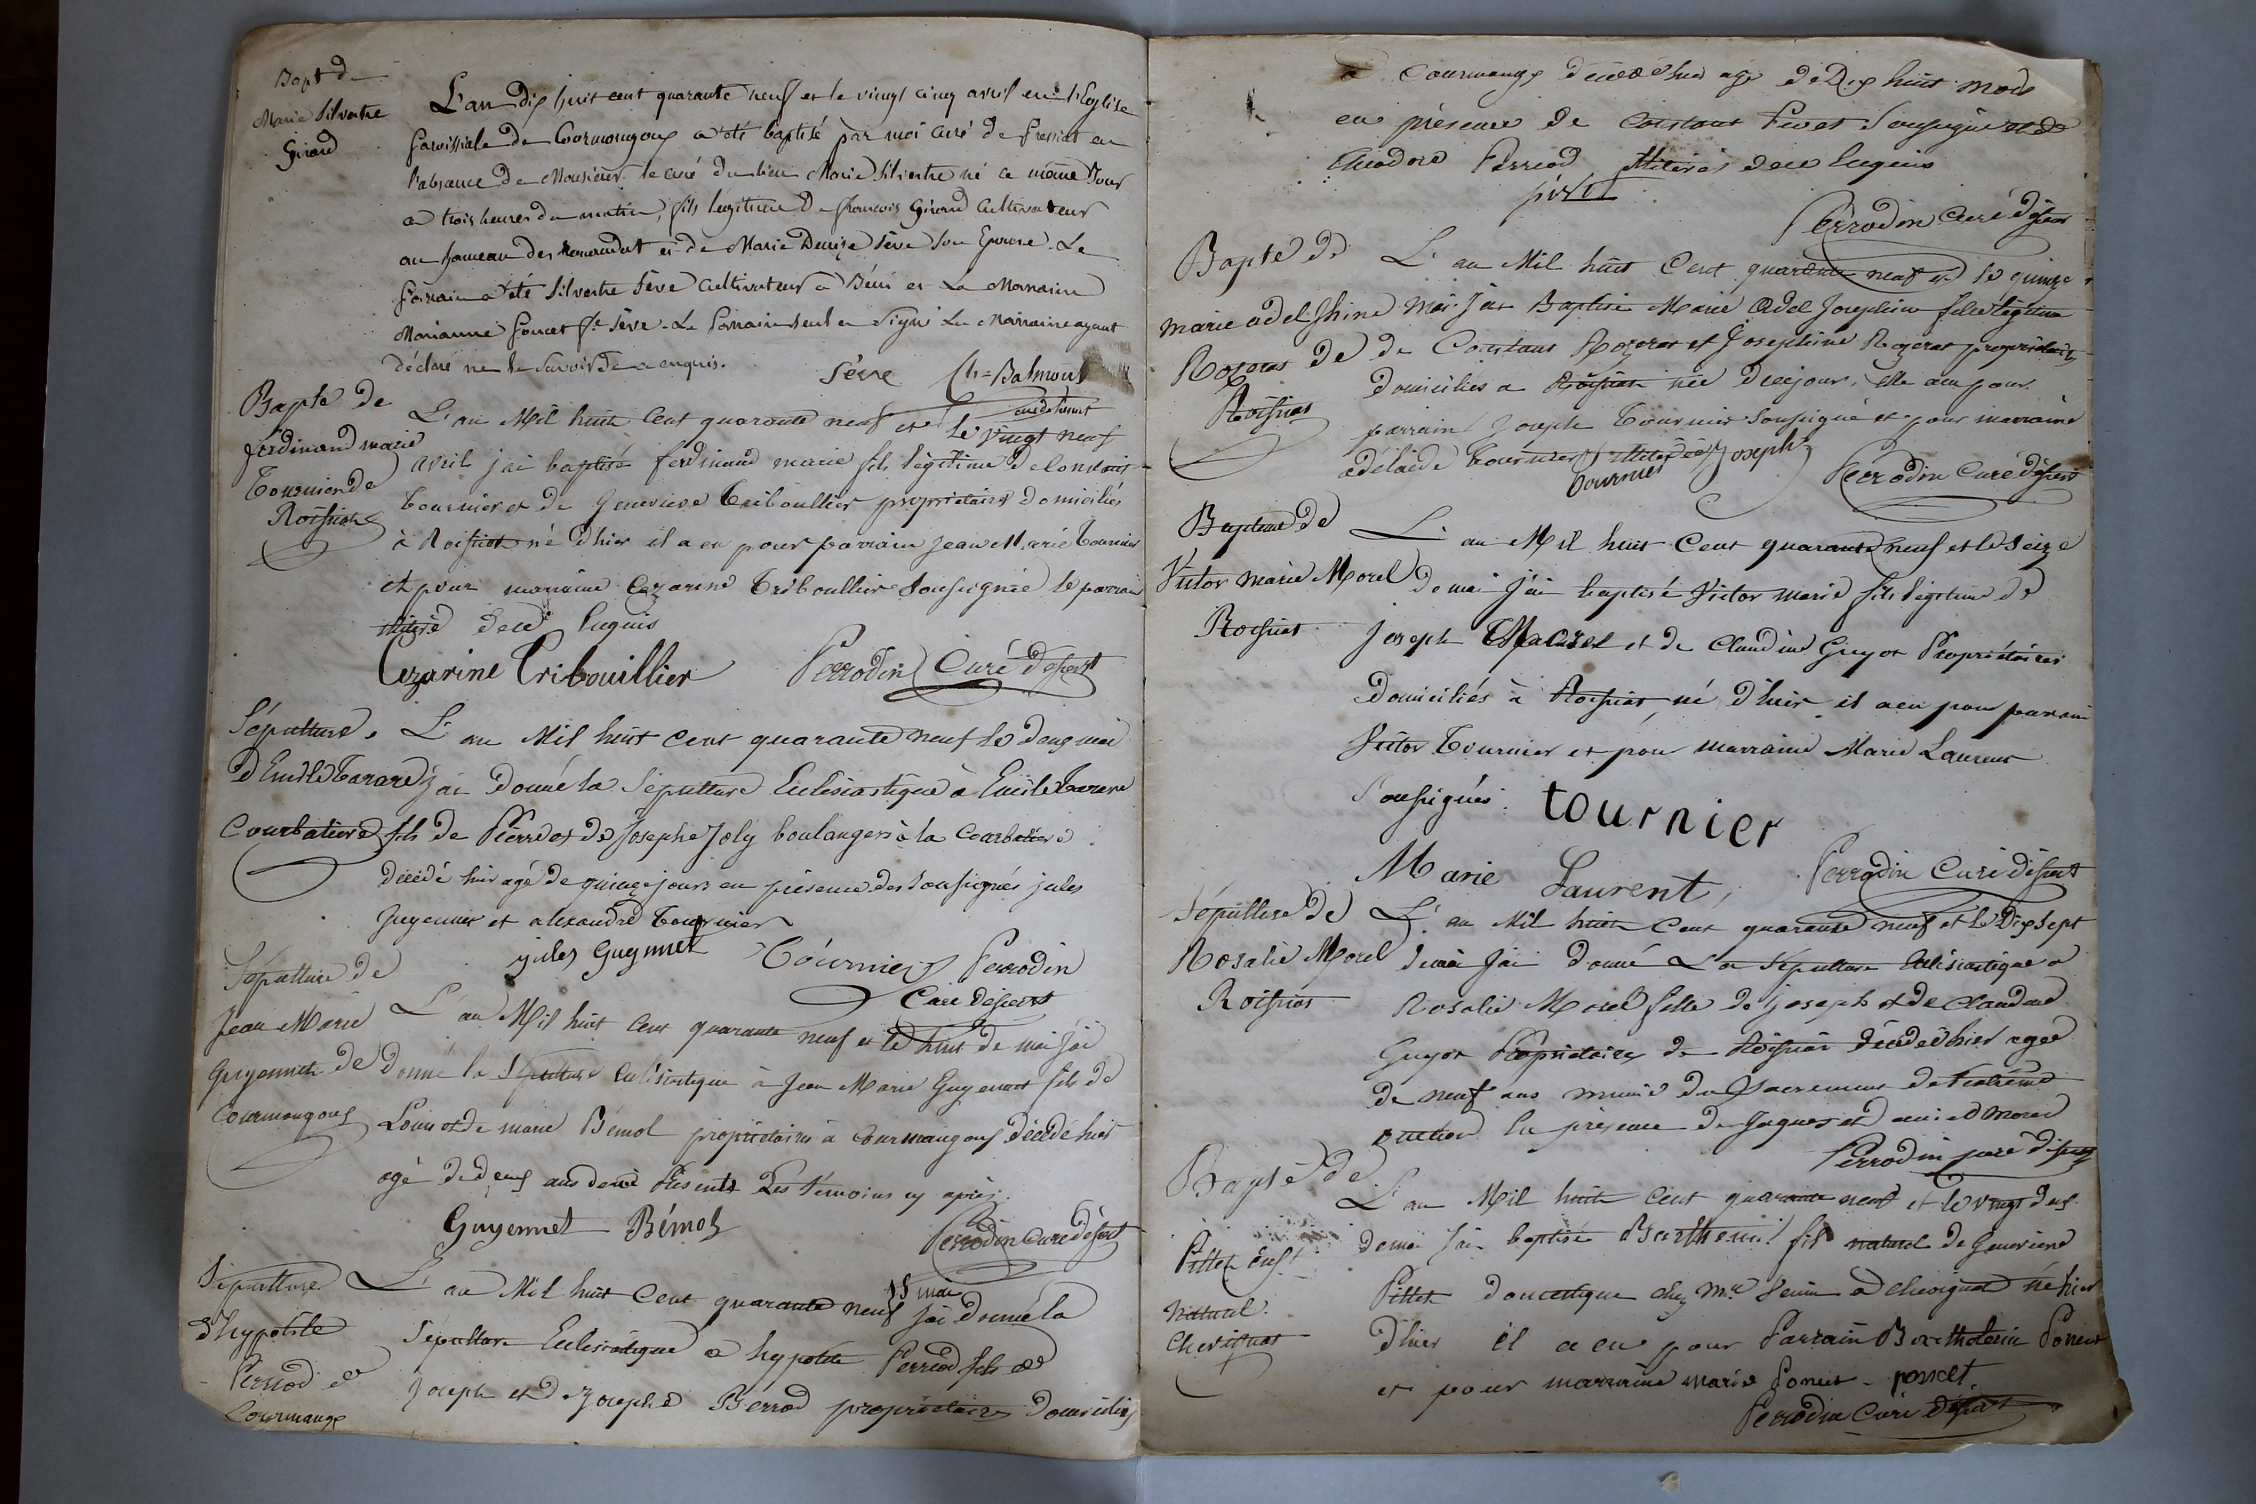 Bapt de
Marie Silvestre
Girard
L'an dix huit cent quarante neuf et le vingt cinq avril en l'Eglise
paroissiale de Courmangoux a été baptisé par moi curé de Pressiat en
l'absence de Monsieur le curé du lieu Marie Silvestre né ce même Jour
a trois heures du matin, fils légitime De françois Girard Cultivateur
au hameau des et de Marie Denize Sève Son Epouse. Le
Parrain a été Silvestre Sève Cultivateur a Bény et La Marraine
Marianne Poncet fe Sève. Le Parrain seul a Signé La Marraine ayant
déclaré ne le Savoir De ce enquis.
Sève Ch. Balmont
Bapte de
ferdinand marie
Tournier de
Roissiat
L'an Mil huit Cent quarante neuf et le vingt neuf
avril j'ai baptisé ferdinand marie fils légitime de Constant
Tournier et de Genevieve Triboullier propriétaires Domiciliés
à Roissiat né d'hier il a eu pour parrain Jean Marie Tournier
et pour marraine Cezarine Triboullier Soussignée le parrain
illitéré de ce Enquis
Cezarine Tribouillier Perrodin Curé desert
Sépulture
D'Emile Tarare
Courbatiere
L'an Mil huit Cent quarante neuf le deux mai
j'ai Donné la Sépulture Eclésiastique à Emile Tarare
fils de Pierre et de Josephe Joly boulangers à la Courbatière
décédé hier agé de quinze jours en présence des Soussignés jules
Guyennet et alexandre Tournier
jules Guyennet Tournier Perrodin
Curé desert
Sépulture de
Jean Marie
Guyennet de
Courmangoux
L'an Mil huit Cent quarante neuf et le huit de mai j'ai
donné la Sépulture Eclésiastique à Jean Marie Guyennet fils de
Louis et de marie Bémol propriétaires à Courmangoux décédé hier
agé de deux ans demi Présents Les témoins cy après
Guyennet Bémol Perrodin Curé desert
Sépulture
d'hypolite
Perriod de
Courmangx
L'an Mil huit Cent quarante neuf 15 mai j'ai Donné la
Sépulture Eclésiastique a hypolite Perriod fils de
Joseph et de Josephe Bérrod propriétaires Domiciliés
a Courmangx décédé hier agé de Dix huit mois
en présence de Constant Pivet Soussigné et de
théodore Perriod illitéré de ce Enquis
pivet
Perrodin Curé desert
Bapte de
marie adel phine
Rozeras de
Roissiat
L'an Mil huit Cent quarante neuf et le quinze
Mai j'ai Baptisé Marie Adel Josephine fille légitime
de Constant Rozeras et Josephine Rozeras propriétaires
Domiciliés a Roissiat née de ce jour, Elle a eu pour
parrain Joseph Tournier Soussigné et pour marraine
adélaide Tournier illitérée Joseph
Tournier Perrodin Curé desert
Bapteme de
Victor marie Morel
Roissiat
L'an Mil huit Cent quarante neuf et le Seize
de mai j'ai baptisé Victor marie fils légitime de
Joseph Morel et de Claudine Guyot Propriétaires
Domiciliés à Roissiat né d'hier il a eu pour parrain
Victor Tournier et pour marraine Marie Laurent
Soussignés. tournier
Marie Laurent, Perrodin Curé desert
Sépulture de
Rosalie Morel
Roissiat
L'an Mil huit Cent quarante neuf et le Dix sept
de mai j'ai Donné La Sépulture Eclésiastique a
Rosalie Morel fille de Joseph et de Claudine
Guyot Propriétaires de Roissiat décédée hier agée
de neuf ans munie du Sacrement de l'extrême
onction En présence de Jaques et aimé Morel
Perrodin curé desert
Bapte de
Pittet Enft
Naturel
Chevignat
L'an Mil huit Cent quarante neuf et le vingt deux
de mai j'ai baptisé Barthemi fils naturel de Genevieve
Pittet Domestique chez Mr a Chevignat né hier
d'hier il a eu pour Parrain Bartholemin Poncet
et pour marraine marie Poncet - poncet
Perrodin Curé desert